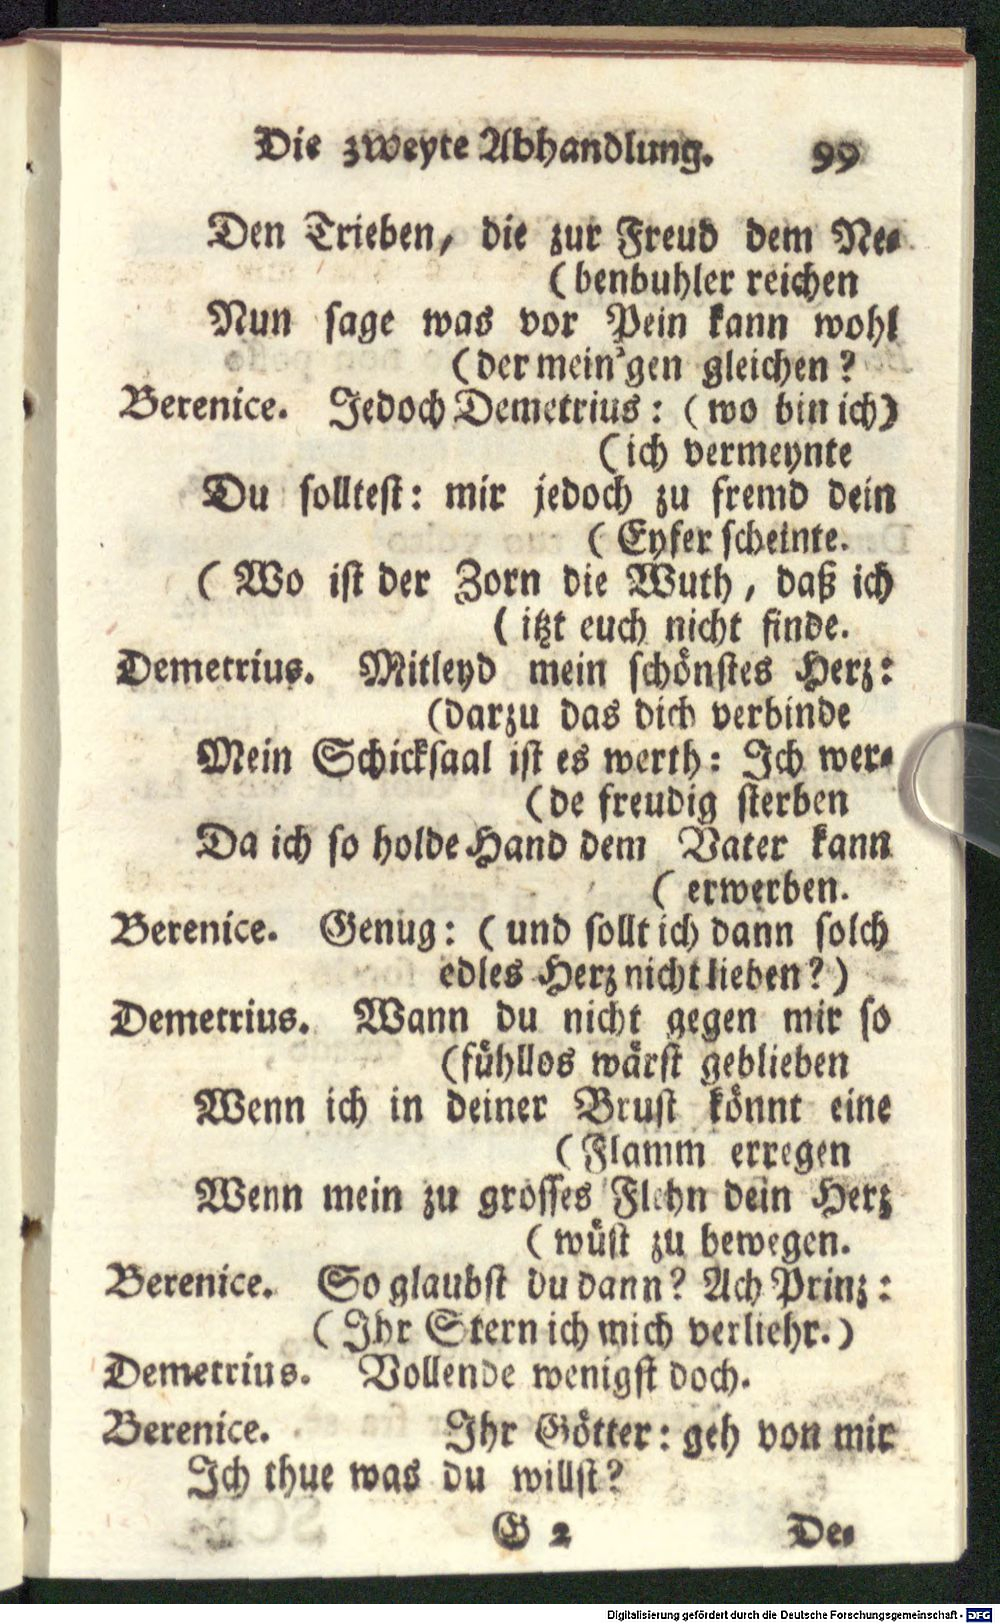 Die zweyte Abhandlung. 99
Den Trieben, die zur Freud dem Ne-
(benbuhler reichen
Nun sage was vor Pein kann wohl
(der mein'gen gleichen?
Berenice. Jedoch Demetrius: (wo bin ich)
(ich vermeynte
Du solltest: mir jedoch zu fremd dein
(Eyfer scheinte.
(Wo ist der Zorn die Wuth, daß ich
(itzt euch nicht finde.
Demetrius. Mitleyd mein schönstes Herz:
(darzu das dich verbinde
Mein Schicksaal ist es werth: Ich wer-
(de freudig sterben
Da ich so holde Hand dem Vater kann
(erwerben.
Berenice. Genug: (und sollt ich dann solch
edles Herz nicht lieben?)
Demetrius. Wann du nicht gegen mir so
(fühllos wärst geblieben
Wenn ich in deiner Brust könnt eine
(Flamm erregen
Wenn mein zu grosses Flehn dein Herz
(wüst zu bewegen.
Berenice. So glaubst du dann? Ach Prinz:
(Ihr Stern ich mich verliehr.)
Demetrius. Vollende wenigst doch.
Berenice. Ihr Götter: geh von mir
Ich thue was du willst?
G 2 De-
Digitalisierung gefördert durch die Deutsche Forschungsgemeinschaft - DFG